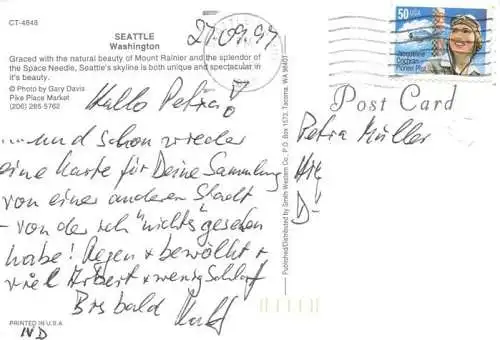 CT-4848
SEATTLE
Washington
Graced with the natural beauty of Mount Rainier and the splendor of
the Space Needle, Seattle's skyline is both unique and spectacular in
it's beauty.
© Photo by Gary Davis
Pike Place Market
(206) 285 5762
27.09.97
Hallo Petra!
...und schon wieder
eine Karte für Deine Sammlung
von einer anderen Stadt
- von der ich "nichts" gesehen
habe! Regen + bewölkt +
viel Arbeit + wenig Schlaf
Bis bald
PRINTED IN U.S.A.
Published/Distributed by Smith-Western Co., P.O. Box 1573, Tacoma, WA 98401
50 USA
Jacqueline
Cochran
Pioneer Pilot
Post Card
Petra Müller
D-